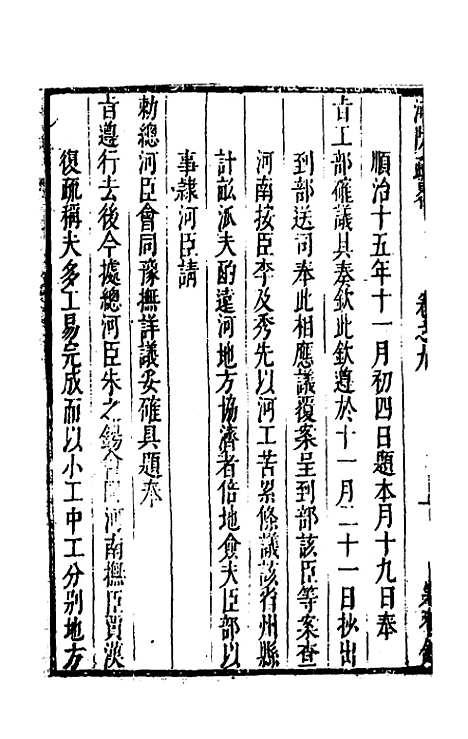 河防疏畧
卷之九
順治十五年十一月初四日題本月十九日奉
旨工部確議具奏欽此欽遵於十一月二十一日抄出
到部送司奉此相應議覆案呈到部該臣等案查
河南按臣李及秀先以河工苦累條議該省州縣
計畝派夫酌遠河地方協濟者倍地僉夫臣部以
事隸河臣請
勅總河臣會同豫撫詳議妥確具題奉
旨遵行去後今據總河臣朱之錫會同河南撫臣賈漢
復疏稱夫多工易完成而以小工中工分别地方